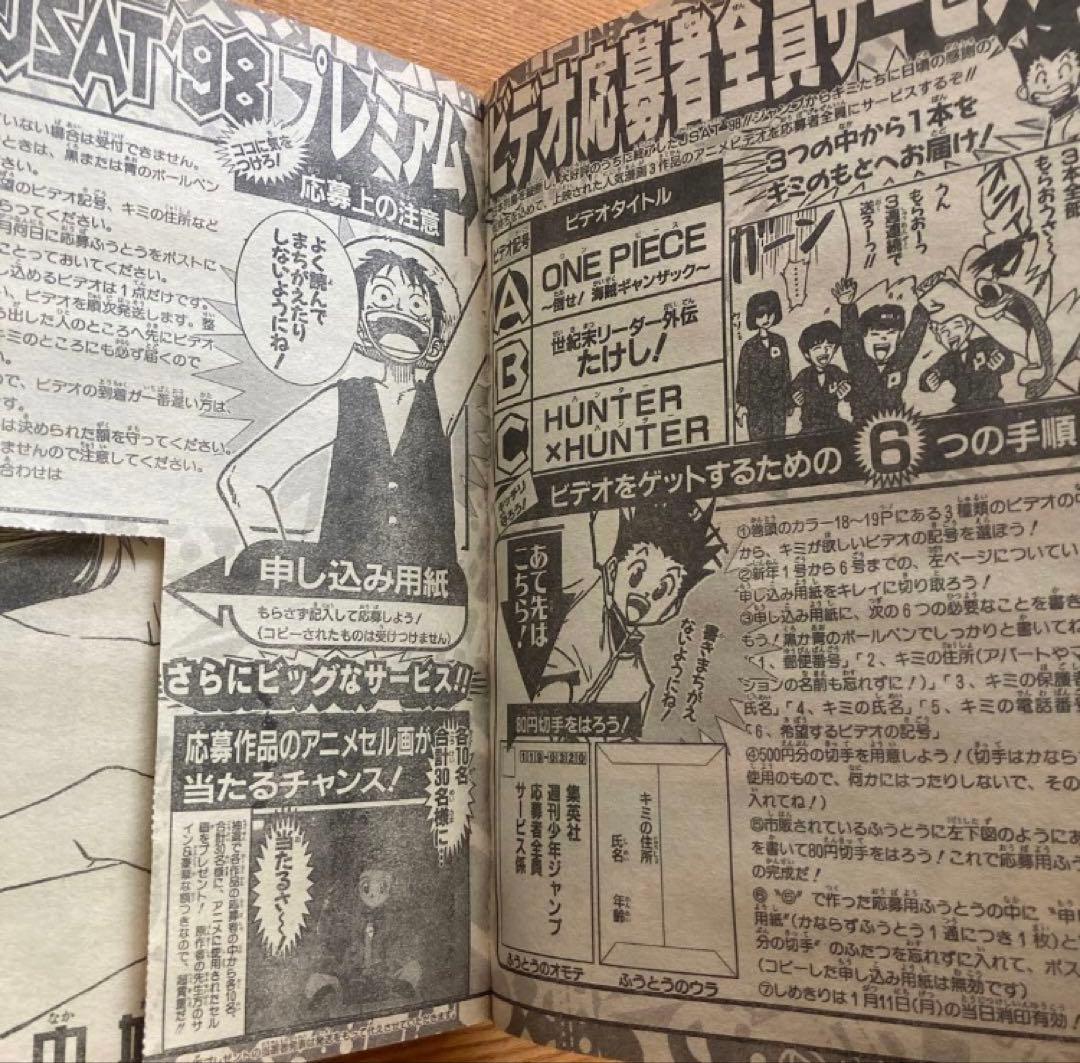 JSAT'98プレミアム
ていない場合は受付できません。
ときは、黒または青のボールペン
さい。
望のビデオ記号、キミの住所など
らってください。
月何日に応募ふうとうをポストに
ことっておいてください。
し込めるビデオは1点だけです。
い、ビデオを順次発送します。整
ち出した人のところへ先にビデオ
キミのところにも必ず届くので
ん。
ので、ビデオの到着が一番遅い方は、
です。
は決められた額を守ってください。
ませんので注意してください。
合わせは
ココに気を
つけろ!
応募上の注意
よく読んで
まちがえたり
しないようにね!
申し込み用紙
もらさず記入して応募しよう!
(コピーされたものは受けつけません)
さらにビッグなサービス!!
応募作品のアニメセル画が
当たるチャンス!
各10名
合計30名様に…
抽選で各作品の応募者の中から各10名、
合計30名様に、アニメに使用されたセル
画をプレゼント! 原作者の先生方のサ
イン&豪華な額つきなので、超貴重だ!!
当たるさ〜
ビデオ応募者全員サービス
ジャンプからキミたちに日頃の感謝の
上映された人気漫画3作品のアニメビデオを応募者全員にサービスするぞ!!
3つの中から1本を
キミのもとへお届け!
ビデオ記号
ビデオタイトル
A
ONE PIECE
〜倒せ! 海賊ギャンザック〜
B
世紀末リーダー外伝
たけし!
C
HUNTER
×HUNTER
3本全部
もらおうさ〜
クライ
うん
もらおーっ
3週連続で
送ろーっ!!
ガーン
ビデオをゲットするための6つの手順
あて先は
こちら!
書きまちがえ
ないようにね!
80円切手をはろう!
集英社
週刊少年ジャンプ
応募者全員
サービス係
キミの住所
氏名
年齢
ふうとうのオモテ
ふうとうのウラ
①巻頭のカラー18〜19Pにある3種類のビデオの中
から、キミが欲しいビデオの記号を選ぼう!
②新年1号から6号までの、左ページについてい
申し込み用紙をキレイに切り取ろう!
③申し込み用紙に、次の6つの必要なことを書き
もう!黒か青のボールペンでしっかりと書いてね
「1、郵便番号」「2、キミの住所(アパートやマ
ションの名前も忘れずに!)」「3、キミの保護者
氏名」「4、キミの氏名」「5、キミの電話番号
「6、希望するビデオの記号」
④500円分の切手を用意しよう!(切手はかなら
使用のもので、何かにはったりしないで、その
入れてね!)
⑤市販されているふうとうに左下図のようにあ
を書いて80円切手をはろう!これで応募用ふう
の完成だ!
⑥"⑤"で作った応募用ふうとうの中に"申
用紙"(かならずふうとう1通につき1枚)と
分の切手"のふたつを忘れずに入れて、ポス
(コピーした申し込み用紙は無効です)
⑦しめきりは1月11日(月)の当日消印有効!